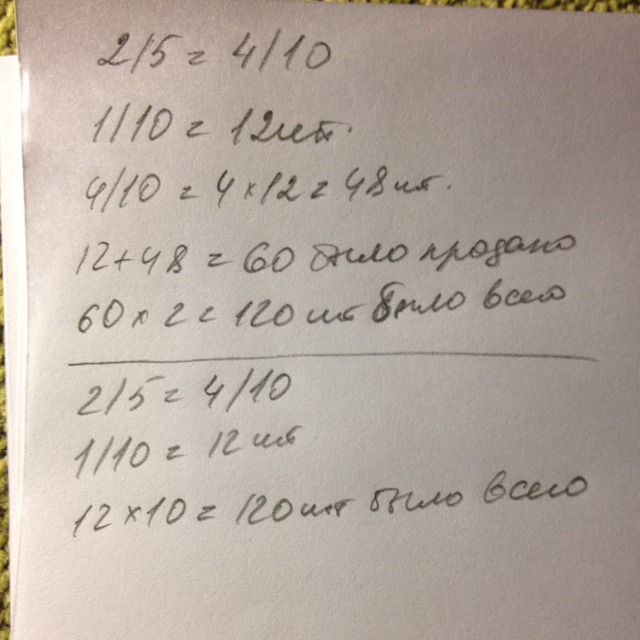 2/5 = 4/10
1/10 = 12шт.
4/10 = 4×12 = 48шт.
12+48 = 60 было продано
60×2 = 120шт было всего
2/5 = 4/10
1/10 = 12шт
12×10 = 120шт было всего